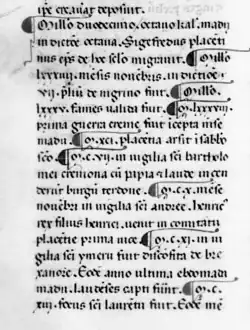 ipē creauāt deposuit.
Millō duodecimo, octauo kal' madii
in dictōe octaua. Sigefredus placenti
nus eps de hoc sclo migrauit. Millō
lxxxviij, mēsis nouēbris. in dictiōe
vij. pliū de nigrino fuit. Millō.
lxxxx. fames ualida fuit. M.lxxxxiij
prima guerra creme fuit icepta mēse
madii. M.xci. placētia arsit i sabbo
sco. M.c.vij. in uigilia sci bartholo
mei cremona cū papia & laude incen
derūt burgū terdone. M.c.x. mēse
nouēbris in uigilia sci andree. henric
rex filius henrici. uenit in comitatu
placētie prima uice M.c.xj. in ui
gilia sci ymerii fuit discōfita de bre
xanorē. Eodē anno ultima ebdomada
madii. laudēses capti fuūt. M.c.
xiij. focus sci laurētii fuit. Eodē mē